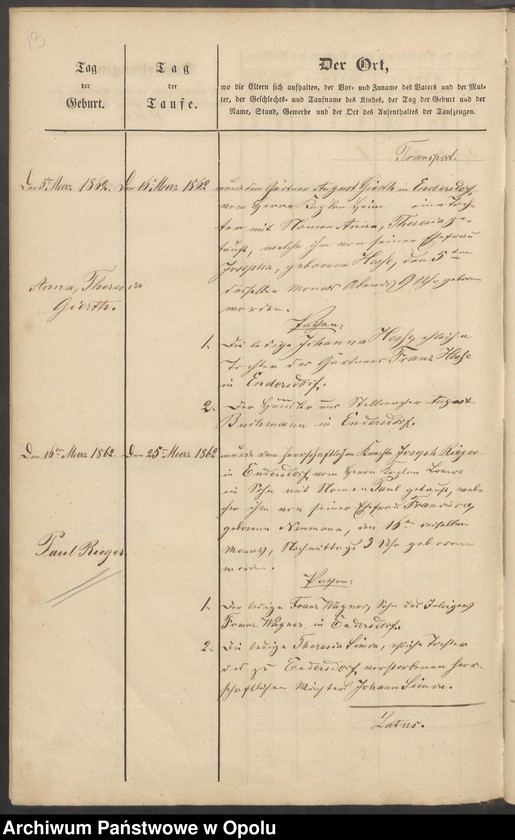 19
Tag
der
Geburt.
Tag
der
Taufe.
Der Ort,
wo die Eltern sich aufhalten, der Vor- und Zuname des Vaters und der Mut-
ter, der Geschlechts- und Taufname des Kindes, der Tag der Geburt und der
Name, Stand, Gewerbe und der Ort des Aufenthaltes der Taufzeugen.
Transport.
Den 5t. Merz 1862. Den 16t. Merz 1862 wurde dem Gärtner August Gierth in Endersdorf
vom Herrn Kaplan eine Toch-
ter mit Namen Anna, Theresia ge-
tauft, welche ihm von seiner Ehefrau
Josepha, geborene Hasse, den 5ten
desselben Monats Abends 9 Uhr geboren
worden.
Anna, Theresia
Gierth.
Pathen:
1. Die ledige Johanna eheliche
Tochter des Gärtners Franz
in Endersdorf.
2. Der Häusler und Stellmacher August
Buchmann in Endersdorf.
Den 16ten Merz 1862. Den 25t. Merz 1862 wurde dem herrschaftlichen Knecht Joseph Rieger
in Endersdorf vom Herrn Kaplan
ein Sohn mit Namen Paul getauft, wel-
cher ihm von seiner Ehefrau Franziska,
geborene Neumann, den 16ten desselben
Monats, Nachmittags 3 Uhr geboren
worden.
Paul Rieger
Pathen:
1. Der ledige Franz Wagner, Sohn des
Franz Wagner in Endersdorf.
2. Die ledige Theresia Simon, eheliche Tochter
des zu Endersdorf verstorbenen herr-
schaftlichen Johann Simon.
Latus.
Archiwum Państwowe w Opolu